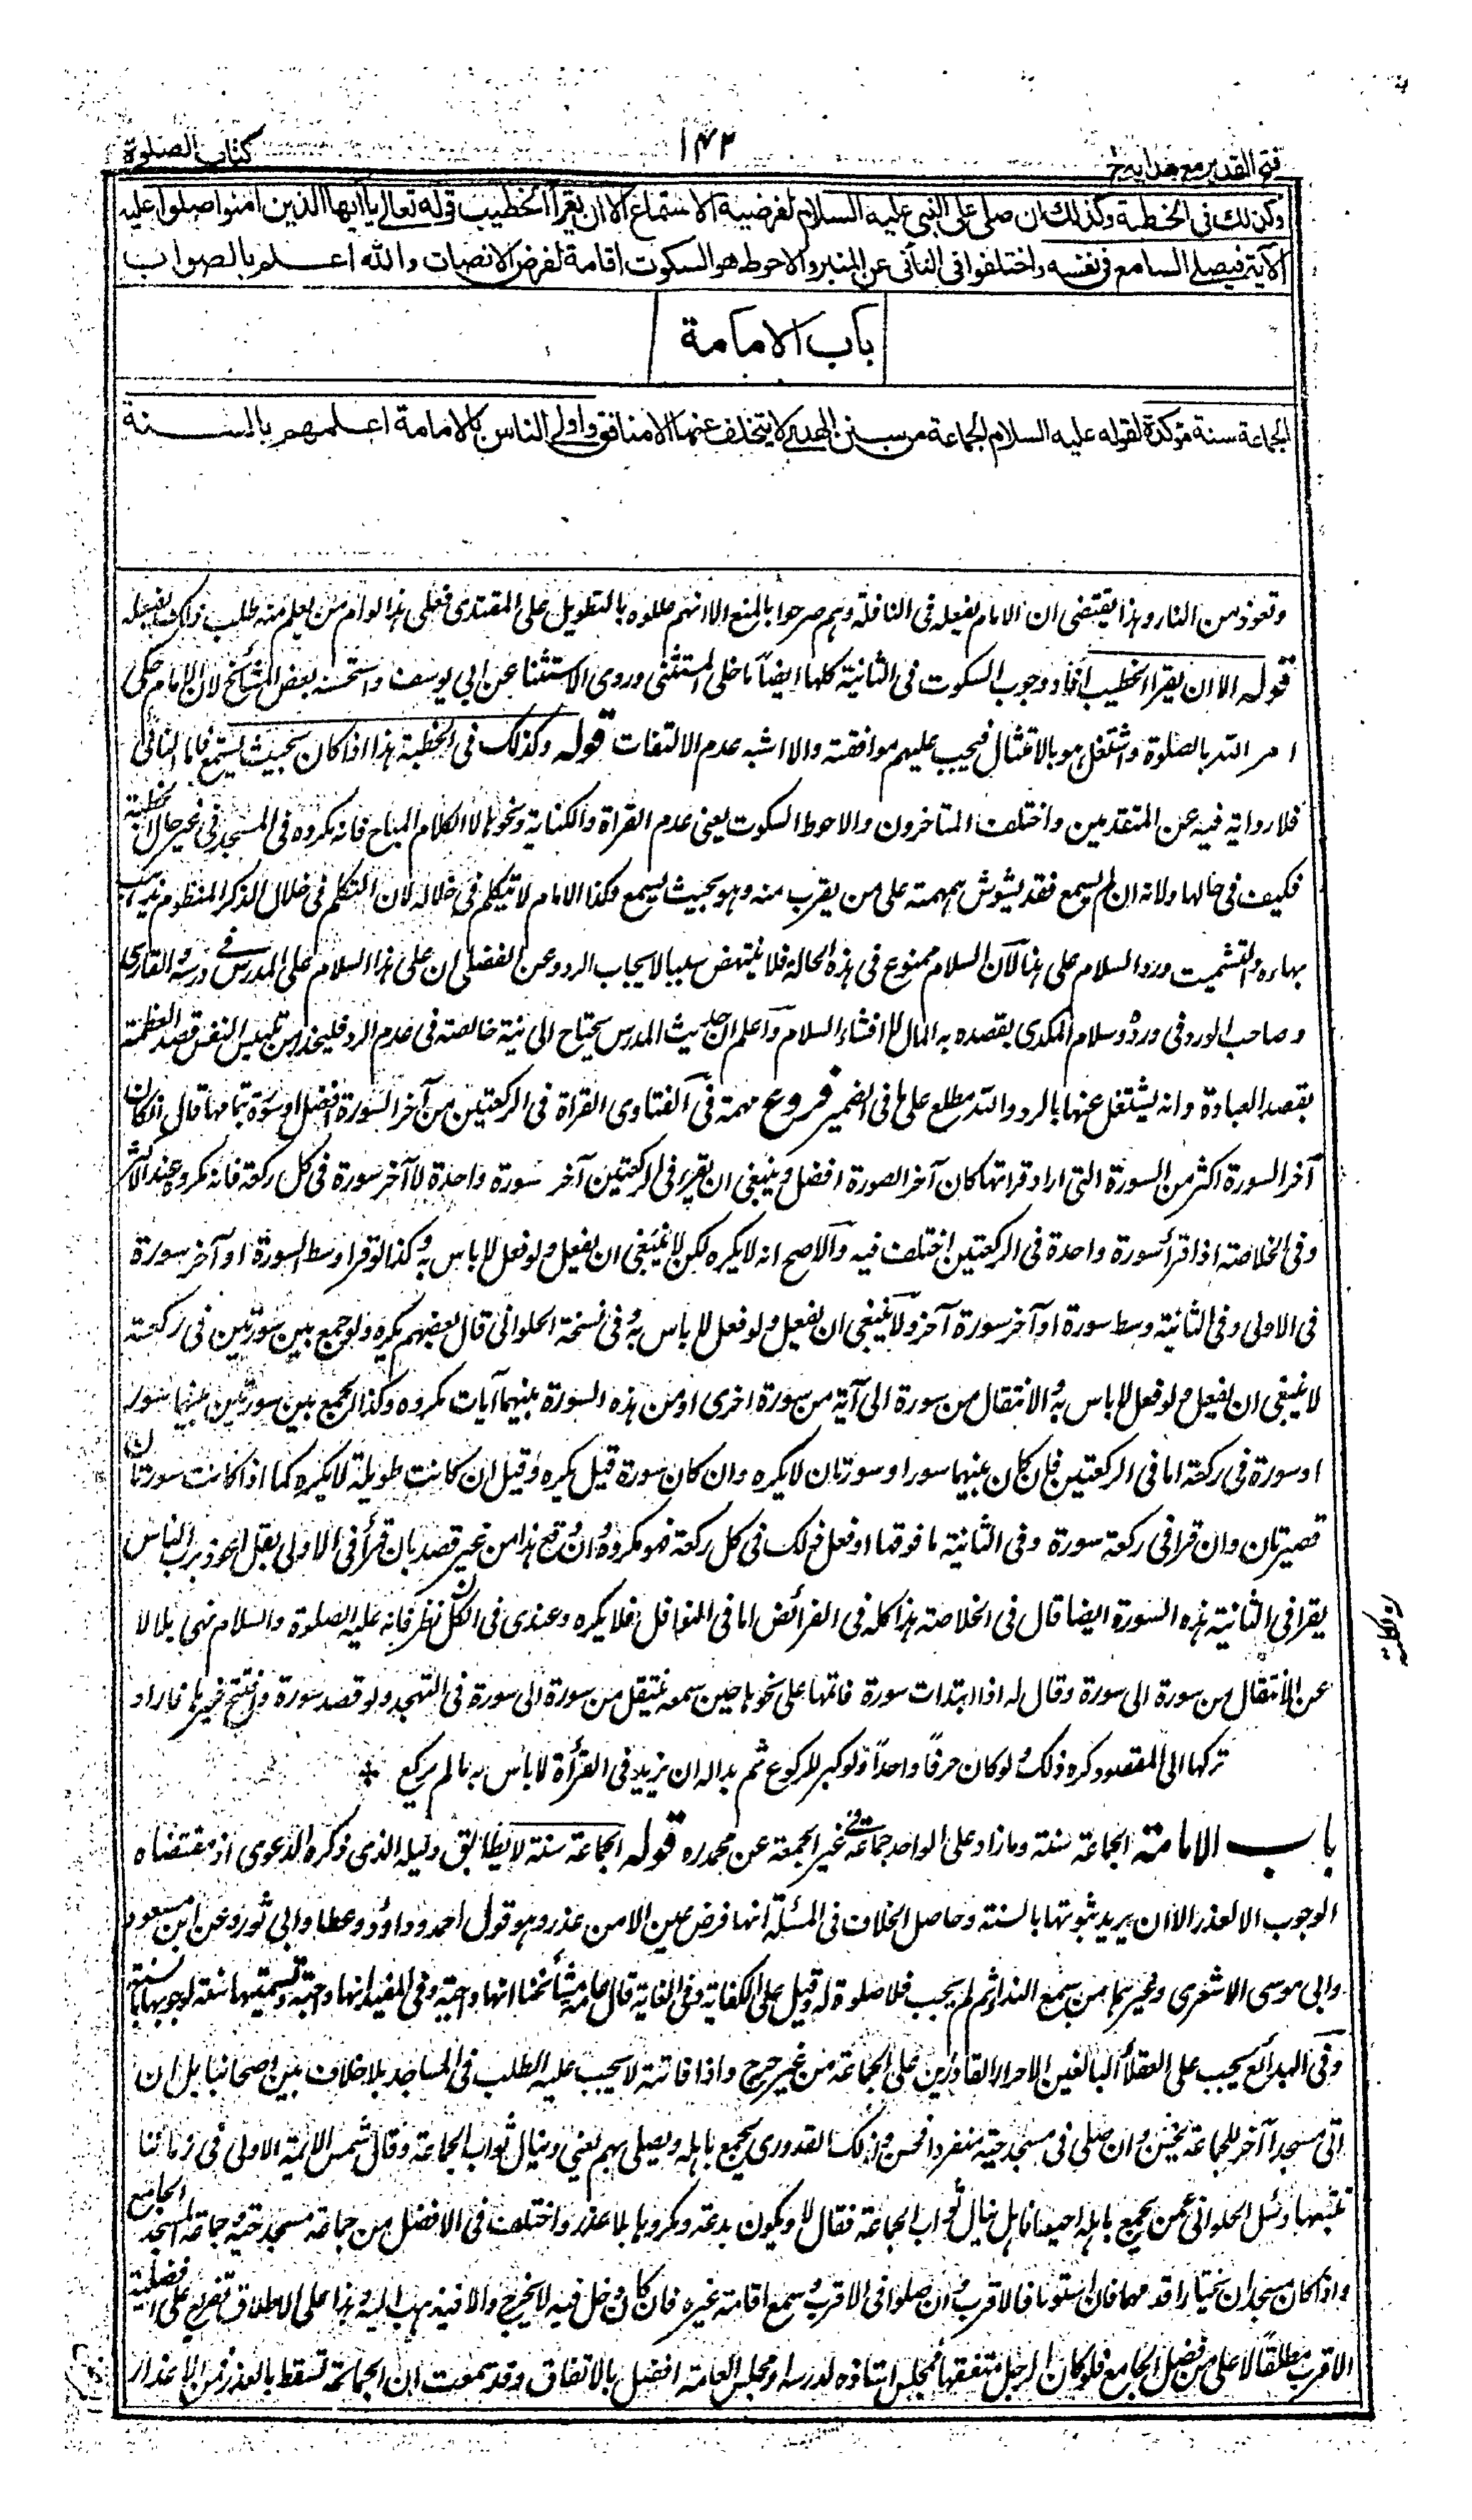 فتح القدير مع هدايه ج ١
١٤٢
كتاب الصلوة
وكذلك فى الخطبة وكذلك ان صلى على النبى عليه السلام لفرضية الاستماع الا ان يقرأ الخطيب قوله تعالى يا ايها الذين امنوا صلوا عليه
الآية فيصلى السامع فى نفسه واختلفوا فى النائى عن المنبر والاحوط هو السكوت اقامة لفرض الانصات والله اعلم بالصواب
باب الامامة
الجماعة سنة مؤكدة لقوله عليه السلام الجماعة من سنن الهدى لا يتخلف عنها الا منافق واولى الناس بالامامة اعلمهم بالسنة
وتعوذ من النار وهذا يقتضى ان الامام يفعله فى النافلة وهم صرحوا بالمنع الا انهم عللوه بالتطويل على المقتدى فعلى هذا لو ام من يعلم منه طلب ذلك يفعله
قوله الا ان يقرا الخطيب افاد وجوب السكوت فى الثانية كلها ايضا ما خلا المستثنى وروى الاستثنا عن ابى يوسف واستحسنه بعض المشائخ لان الامام حكى
امر الله بالصلوة واشتغل هو بالامتثال فيجب عليهم موافقته والا اشبه عدم الالتفات قوله وكذلك فى الخطبة هذا اذا كان بحيث يستمع فاما النائى
فلا رواية فيه عن المتقدمين واختلف المتاخرون والاحوط السكوت يعنى عدم القراة والكتابة ونحوها لا الكلام المباح فانه مكروه فى المسجد فى غير حال الخطبة
فكيف فى حالها ولانه ان لم يسمع فقد يشوش بهمهمته على من يقرب منه وهو بحيث يسمع وكذا الامام لا يتكلم فى خلاله لان التكلم فى خلال الذكر المنظوم يذهب
بهاءه والتشميت ورد السلام على هذا لان السلام ممنوع فى هذه الحالة فلا ينتهض سببا لايجاب الرد وعن الفضلى ان على هذا السلام على المدرس فى درسه والقارى
وصاحب الورد فى ورده وسلام المكدى بقصده به المال لا افشاء السلام واعلم ان حديث المدرس يحتاج الى نية خالصة فى عدم الرد فليحذر من تلبيس النفس قصد العظمة
بقصد العبادة وانه يشتغل عنها بالرد والله مطلع على ما فى الضمير فروع مهمة فى الفتاوى القراة فى الركعتين من آخر السورة افضل او سورة بتمامها قال ان كان
آخر السورة اكثر من السورة التى اراد قراتها كان آخر الصورة افضل وينبغى ان يقرء فى الركعتين آخر سورة واحدة لا آخر سورة فى كل ركعة فانه مكروه عند الاكثر
وفى الخلاصة اذا قرأ سورة واحدة فى الركعتين اختلف فيه والاصح انه لا يكره لكن لا ينبغى ان يفعل ولو فعل لا باس به وكذا لو قرا وسط السورة او آخر سورة
فى الاولى وفى الثانية وسط سورة او آخر سورة آخر ولا ينبغى ان يفعل ولو فعل لا باس به وفى نسخة الحلوانى قال بعضهم يكره ولو جمع بين سورتين فى ركعة
لا ينبغى ان يفعل ولو فعل لا باس به والانتقال من سورة الى آية من سورة اخرى او من هذه السورة بينهما آيات مكروه وكذا الجمع بين سورتين بينهما سور
او سورة فى ركعة اما فى الركعتين فان كان بينهما سور او سورتان لا يكره وان كان سورة قيل يكره وقيل ان كانت طويلة لا يكره كما اذا كانت سورتان
قصيرتان وان قرا فى ركعة سورة وفى الثانية ما فوقها او فعل ذلك فى كل ركعة فهو مكروه وان وقع هذا من غير قصد بان قرأ فى الاولى بقل اعوذ برب الناس
يقرا فى الثانية هذه السورة ايضا قال فى الخلاصة هذا كله فى الفرائض اما فى النوافل فلا يكره وعندى فى الكل نظر فانه عليه الصلوة والسلام نهى بلالا
عن الانتقال من سورة الى سورة وقال له اذا ابتدات سورة فاتمها على نحوها حين سمعه ينتقل من سورة الى سورة فى التهجد ولو قصد سورة وافتتح غيرها فاراد
تركها الى المقصود كره ذلك ولو كان حرفا واحدا ولو كبر للركوع ثم بدا له ان يزيد فى القرأة لا باس به ما لم يركع ٭
باب الامامة الجماعة سنة وما زاد على الواحد جماعة فى غير الجمعة عن محمد ره قوله الجماعة سنة لا يطابق دليله الذى ذكره الدعوى اذ مقتضاه
الوجوب الا لعذر الا ان يريد ثبوتها بالسنة وحاصل الخلاف فى المسئلة انها فرض عين الا من عذر وهو قول احمد وداؤد وعطا وابى ثور وعن ابن مسعود
وابى موسى الاشعرى وغيرهما من سمع النداء ثم لم يجب فلا صلوة له وقيل على الكفاية وفى الغاية قال عامة مشائخنا انها واجبة وفى المفيد انها واجبة وتسميتها سنة لوجوبها بالسنة
وفى البدائع يجب على العقلا البالغين الاحرار القادرين على الجماعة من غير حرج واذا فاتته لا يجب عليه الطلب فى المساجد بلا خلاف بين اصحابنا بل ان
اتى مسجدا آخر للجماعة فحسن وان صلى فى مسجد حيه منفردا فحسن وذكر القدورى يجمع باهله ويصلى بهم يعنى وينال ثواب الجماعة وقال شمس الائمة الاولى فى زماننا
تتبعها وسئل الحلوانى عمن يجمع باهله احيانا هل ينال ثواب الجماعة فقال لا ويكون بدعة ومكروها بلا عذر واختلف فى الافضل من جماعة مسجد حيه وجماعة المسجد الجامع
واذا كان مسجدان يختار اقدمهما فان استويا فالاقرب وان صلوا فى الاقرب وسمع اقامة غيره فان كان دخل فيه لا يخرج والا فيذهب اليه وهذا على الاطلاق تفريع على افضلية
الاقرب مطلقا لا على من فضل الجامع فلو كان الرجل متفقها فمجلس استاذه لدرسه او مجلس العامة افضل بالاتفاق وقد سمعت ان الجماعة تسقط بالعذر فمن الاعذار